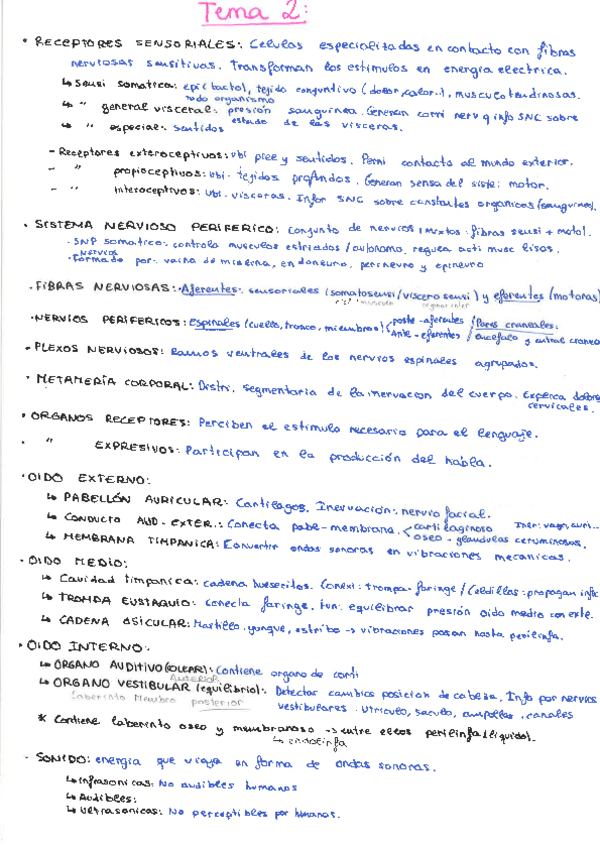 Tema 2:
• RECEPTORES SENSORIALES: Celulas especializadas en contacto con fibras
nerviosas sensitivas. Transforman los estimulos en energia electrica.
↳ Sensi somatica: epi (tacto), tejido conjuntivo (dolor, calor..), musculotendinosas.
todo organismo
↳ " general visceral: presión sanguinea. Generan corri nerv q info SNC sobre
estado de las visceras.
↳ " especial: sentidos
- Receptores exteroceptivos: ubi piel y sentidos. Permi contacto al mundo exterior.
- " propioceptivos: ubi. tejidos profundos. Generan sensa del siste: motor.
- " interoceptivos: ubi. visceras. Infor SNC sobre constantes organicas (sanguinea).
• SISTEMA NERVIOSO PERIFERICO: Conjunto de nervios mixtos: fibras sensi + moto).
- SNP somatico: controla musculos estriados / autonomo, regula acti musc lisos.
nervios
- Formado por: vaina de mielina, endoneuro, perineuro y epineuro
• FIBRAS NERVIOSAS: Aferentes: sensoriales (somatosensi / viscero sensi) y eferentes (motoras)
• NERVIOS PERIFERICOS: Espinales (cuello, tronco, miembros) (poste - aferentes / Pares craneales:
Ante - eferentes / encefalo y craneo
• PLEXOS NERVIOSOS: Ramos ventrales de los nervios espinales agrupados.
• METAMERÍA CORPORAL: Distri. segmentaria de la inervacion del cuerpo. Explica dolores
cervicales.
• ORGANOS RECEPTORES: Perciben el estimulo necesario para el lenguaje.
• " EXPRESIVOS: Participan en la producción del habla.
• OIDO EXTERNO:
↳ PABELLÓN AURICULAR: Cartilagos. Inervación: nervio facial.
↳ CONDUCTO AUD-EXTER.: Conecta pabe-membrana. < cartilaginoso Iner: vago, auri...
oseo - glandulas ceruminosas.
↳ MEMBRANA TIMPANICA: Convertir ondas sonoras en vibraciones mecanicas.
• OIDO MEDIO:
↳ Cavidad timpanica: cadena huesecillos. Conexi: trompa-faringe / Celdillas: propagan infec
↳ TROMPA EUSTAQUIO: conecta faringe. Fun: equilibrar presión oido medio con exte.
↳ CADENA OSICULAR: Martillo, yunque, estribo → vibraciones pasan hasta perilinfa.
• OIDO INTERNO:
↳ ORGANO AUDITIVO (COLEAR): Contiene organo de corti
Anterior
↳ ORGANO VESTIBULAR (equilibrio): Detectar cambios posicion de cabeza. Info por nervios
Laberinto Membro posterior vestibulares. Utriculo, saculo, ampollas, canales
* Contiene laberinto oseo y membranoso → entre ellos perilinfa (liquido).
↳ endolinfa
• SONIDO: energia que viaja en forma de ondas sonoras.
↳ Infrasonicas: No audibles humanos
↳ Audibles:
↳ Ultrasonicas: No perceptibles por humanos.